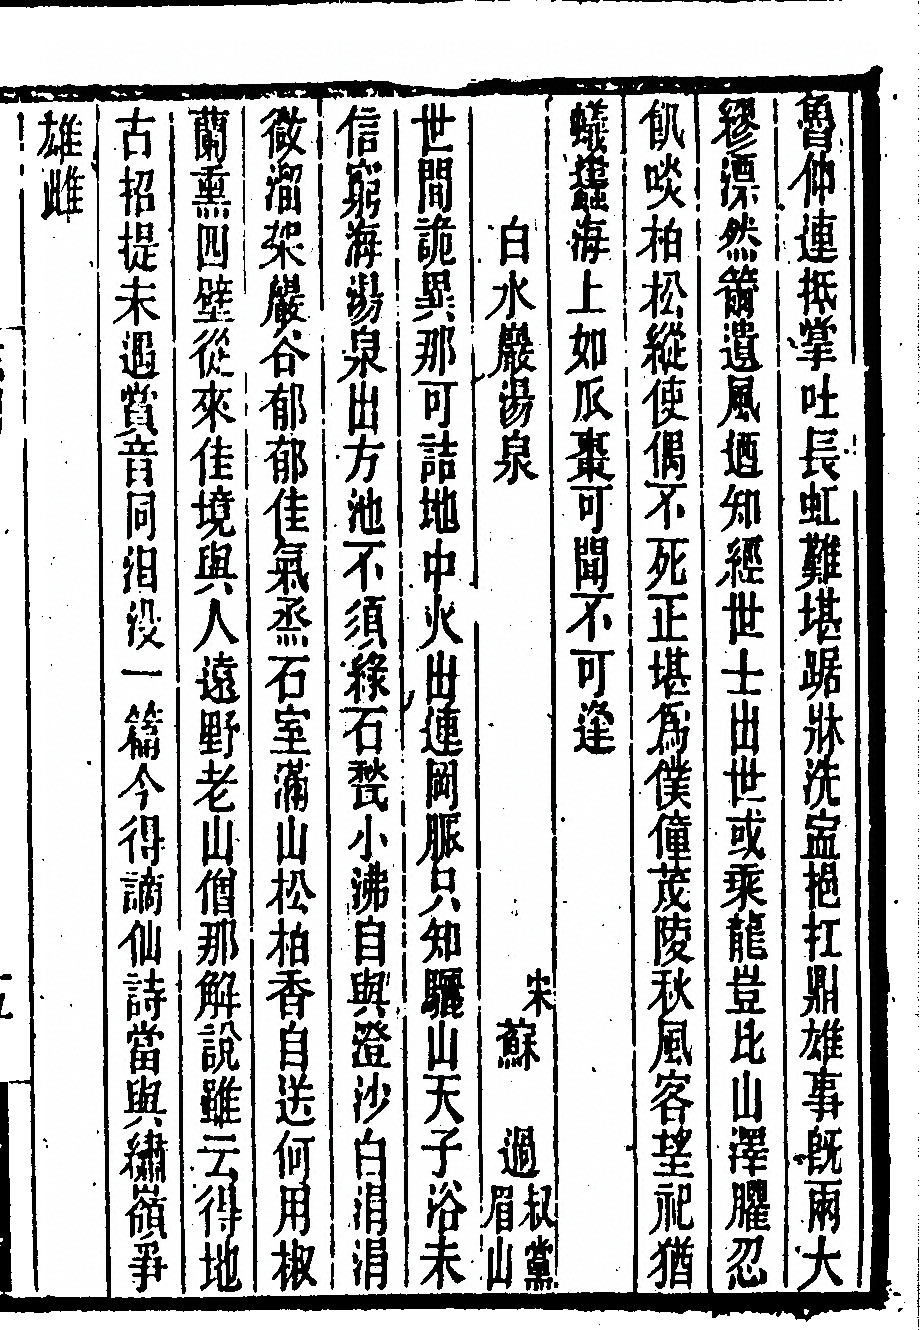 魯仲連抵掌吐長虹難堪踞牀洗盥挹扛鼎雄事旣兩大
繆漂然箭遺風迺知經世士出世或乘龍豈比山澤臞忍
飢啖柏松縱使偶不死正堪爲僕僮茂陵秋風客望祀猶
蟻䗬海上如瓜棗可聞不可逢
白水巖湯泉
宋蘇過叔黨眉山
世間詭異那可詰地中火出連岡脈只知驪山天子浴未
信窮海湯泉出方池不須綠石甃小沸自與澄沙白涓涓
微溜架巖谷郁郁佳氣烝石室滿山松柏香自送何用椒
蘭熏四壁從來佳境與人遠野老山僧那解說雖云得地
古招提未遇賞音同汨沒一篇今得謫仙詩當與繡嶺爭
雄雌